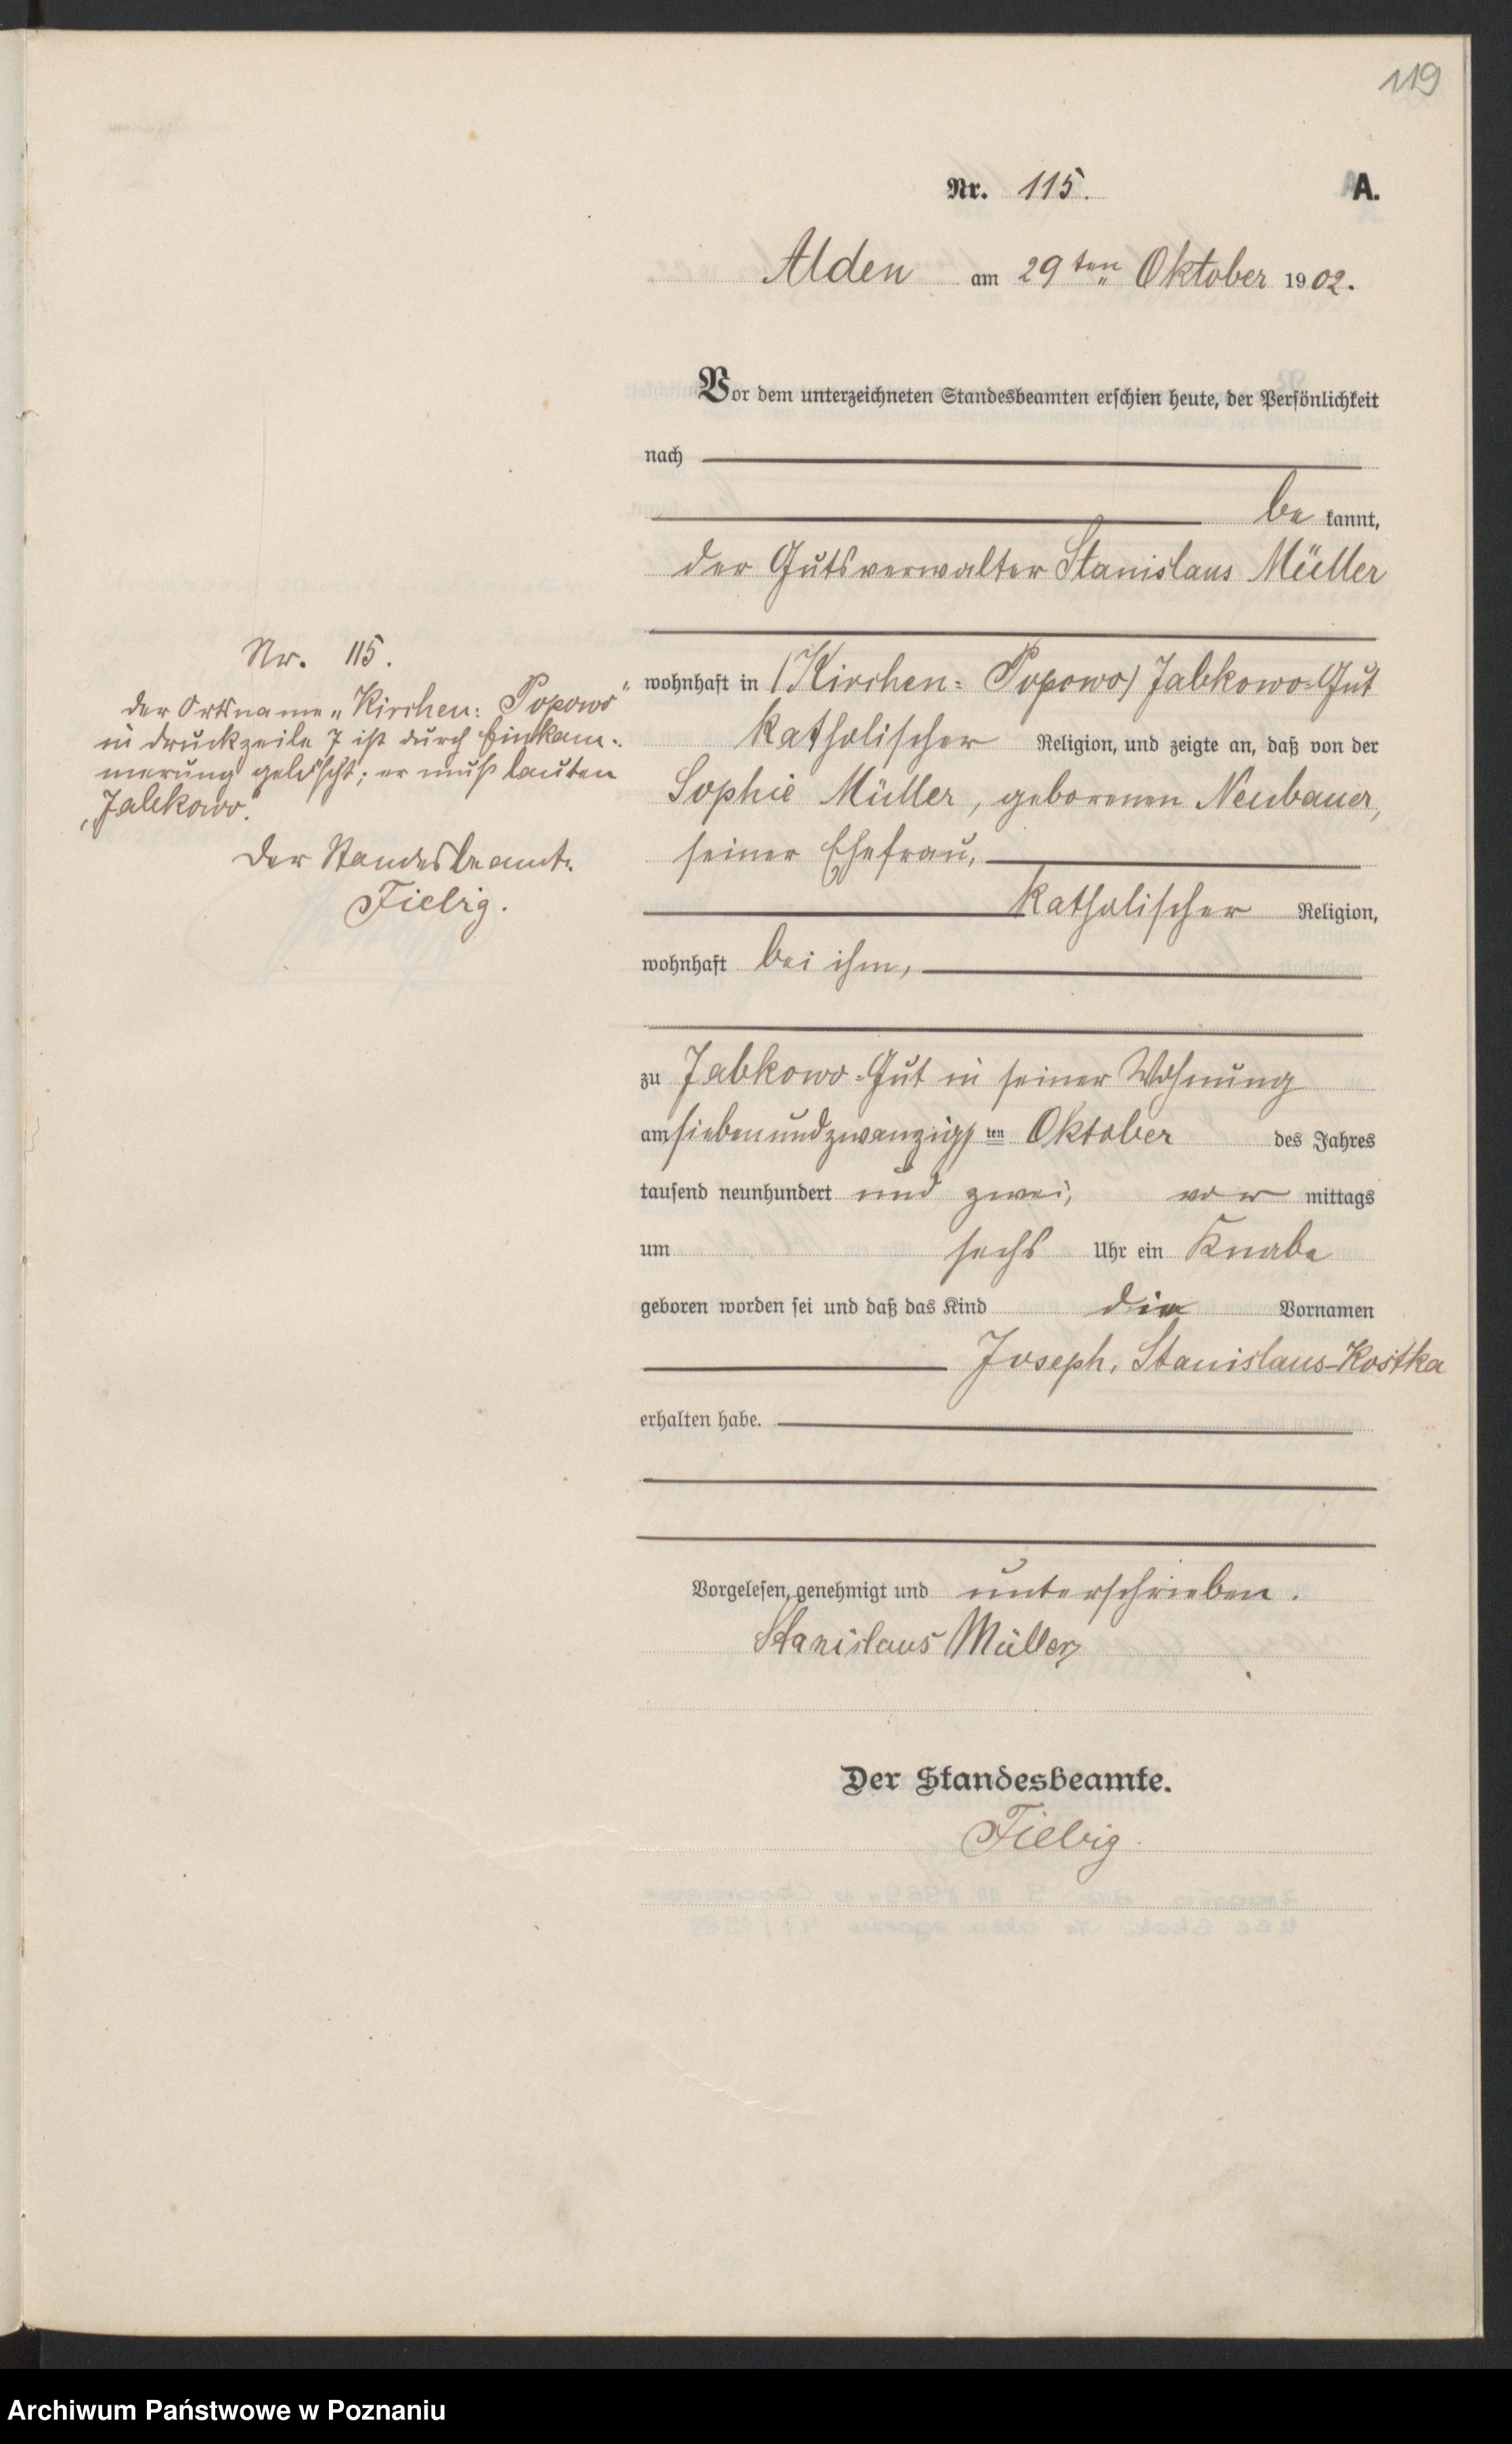 119
Nr. 115. A.
Alden am 29ten Oktober 1902.
Vor dem unterzeichneten Standesbeamten erschien heute, der Persönlichkeit
nach
be kannt,
der Gutsverwalter Stanislaus Müller
wohnhaft in (Kirchen= Popowo) Jabkowo=Gut
katholischer Religion, und zeigte an, daß von der
Sophie Müller, geborenen Neubauer,
seiner Ehefrau,
katholischer Religion,
wohnhaft bei ihm,
zu Jabkowo=Gut in seiner Wohnung
am siebenundzwanzigsten Oktober des Jahres
tausend neunhundert und zwei, vor mittags
um sechs Uhr ein Knabe
geboren worden sei und daß das Kind die Vornamen
Joseph, Stanislaus-Kostka
erhalten habe.
Vorgelesen, genehmigt und unterschrieben.
Stanislaus Müller
Der Standesbeamte.
Fiebig.
Nr. 115.
der Ortsname „Kirchen= Popowo"
in Druckzeile 7 ist durch Einkam=
merung gelöscht; er muß lauten
„Jabkowo".
Der Standesbeamte.
Fiebig.
Archiwum Państwowe w Poznaniu